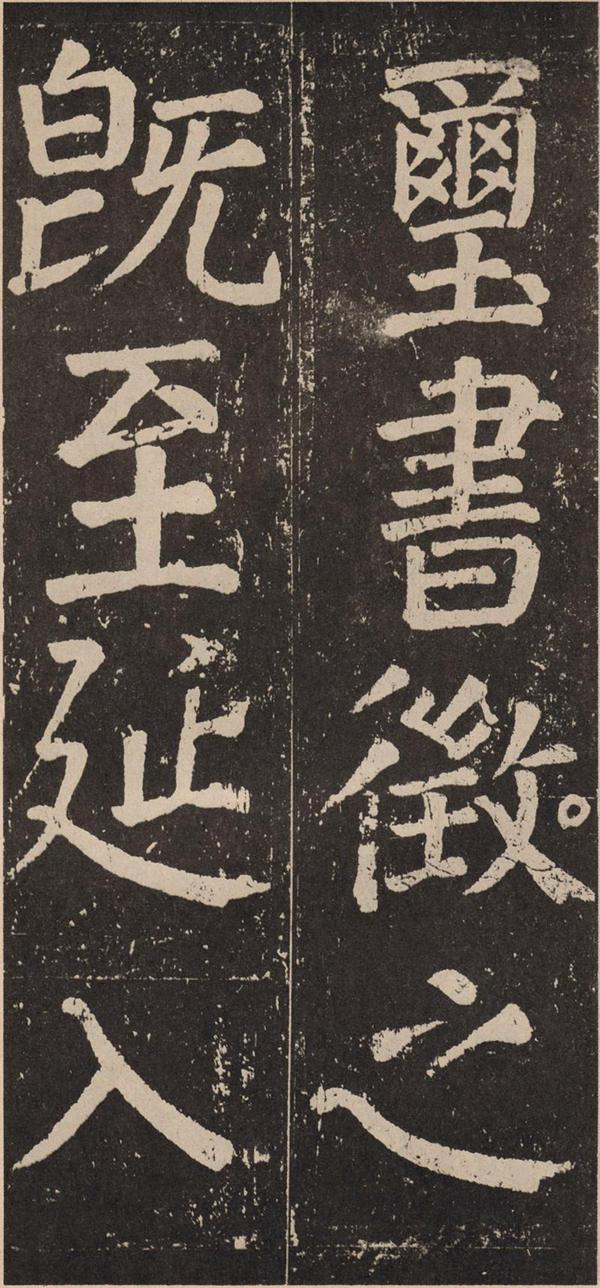 璽書徵之
既至延入